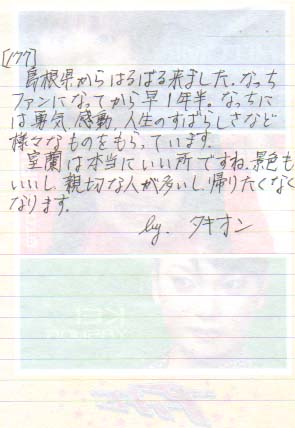 [177]
島根県からはるばる来ました。なっち
ファンになってから早1年半。なっちに
は勇気、感動、人生のすばらしさなど
様々なものをもらっています。
室蘭は本当にいい所ですね。景色も
いいし、親切な人が多いし、帰りたくなく
なります。
by. タキオン